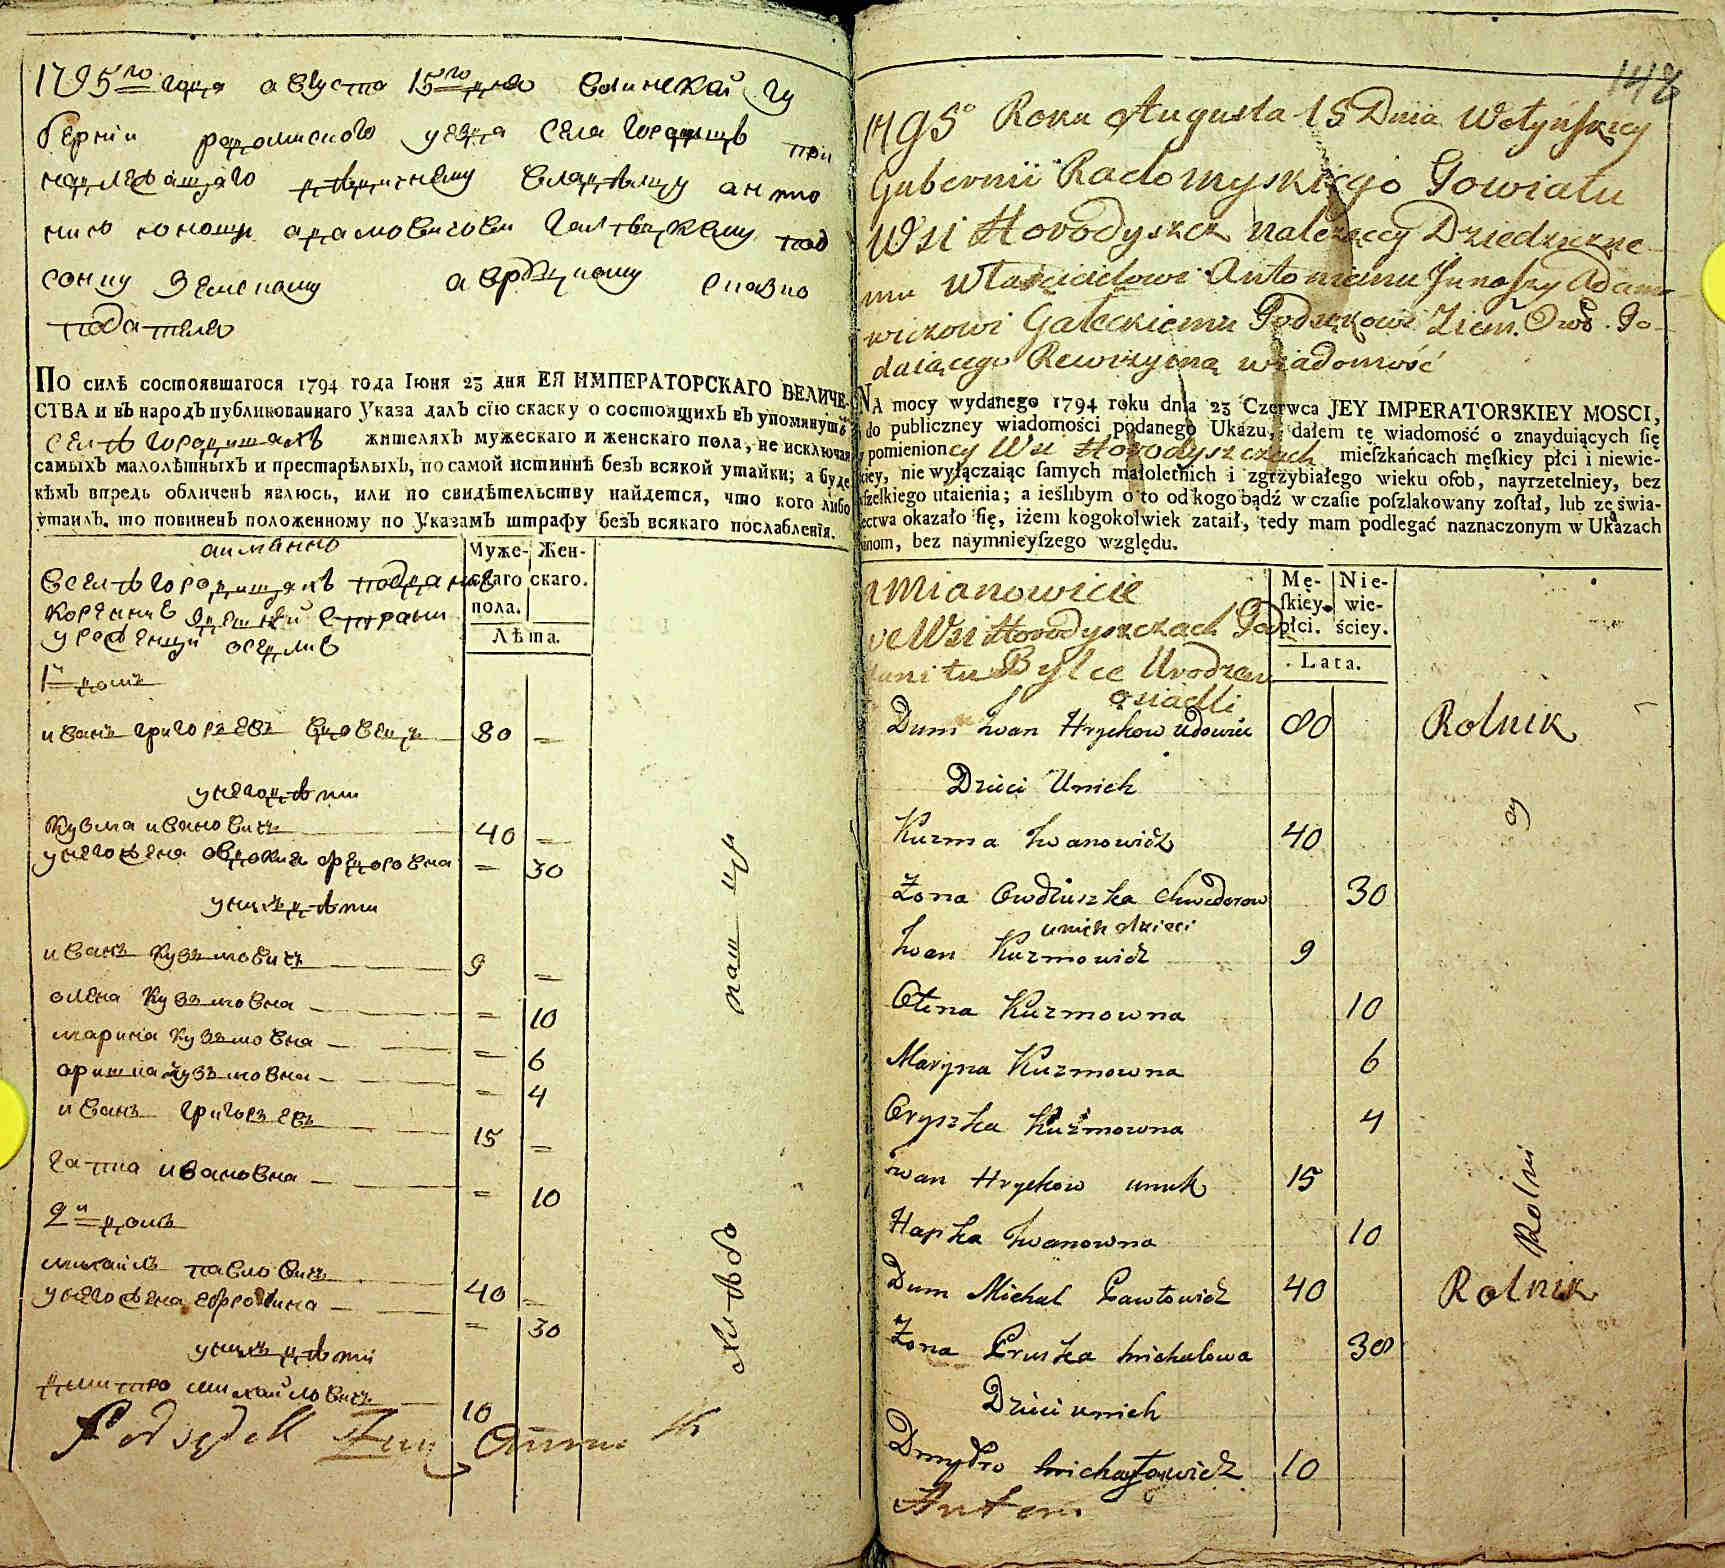 1795го года августа 15го дня волинской гу
бернии радомиского уезда села городищъ при
надлежащаго дедичному владелцу анто
нию юноши адамовичови галецкому под
сотку Земскому овруцкому
подателю
По силѣ состоявшагося 1794 года Іюня 23 дня ЕЯ ИМПЕРАТОРСКАГО ВЕЛИЧЕ-
СТВА и въ народъ публикованнаго Указа далъ сію скаску о состоящихъ въ упомянутѣ
селѣ городищахъ жителяхъ мужескаго и женскаго пола, не исключая
самыхъ малолѣтныхъ и престарѣлыхъ, по самой истиннѣ безъ всякой утайки; а буде
кѣмъ впредь обличенъ явлюсь, или по свидѣтельству найдется, что кого либо
утаилъ, то повиненъ положенному по Указамъ штрафу безъ всякаго послабленія.
аимѣнно
Муже- Жен-
скаго скаго.
пола.
Лѣта.
вселѣ городищахъ поддание
корение здешней страни
урожении оседлие
1й домъ
иванъ григорьевъ вдовецъ 80 =
унегодѣти
кузма ивановичъ 40 =
унегожена овдокия федоровна = 30
унихъ дѣти
иванъ кузьмовичъ 9 =
олена кузьмовна = 10
марина кузьмовна = 6
оришка кузьмовна = 4
иванъ григорьевъ 15 =
гапка ивановна = 10
2й домъ
михаилъ павловичъ 40 =
унегожена = 30
унихъ дѣти
дмитро михайловичъ 10
Podsędek Ziem
паш ци
142
1795o Roku Augusta 15 Dnia Wołyńskiey
Gubernii Radomyskiego Powiatu
Wsi Horodyszcz należącey Dziedziczne
mu Właścicielowi Antoniemu Junoszy Adamo
wiczowi Gałeckiemu Podsędkowi Ziem. Owr. Po-
daiącego Rewizyiną wiadomość
NA mocy wydanego 1794 roku dnia 23 Czerwca JEY IMPERATORSKIEY MOSCI,
do publiczney wiadomości podanego Ukazu, dałem tę wiadomość o znayduiących ſię
pomienioncy Wsi Horodyszczach mieſzkańcach męſkiey płci i niewie-
kiey, nie wyłączaiąc ſamych małoletnich i zgrzybiałego wieku oſob, nayrzetelniey, bez
ſzelkiego utaienia; a ieślibym o to od kogo bądź w czaſie poſzlakowany zoſtał, lub ze świa-
ectwa okazało ſię, iżem kogokolwiek zataił, tedy mam podlegać naznaczonym w Ukazach
inom, bez naymnieyſzego względu.
a Mianowicie
Mę- Nie-
ſkiey wie-
płci. ściey.
Lata.
we Wsi Horodyszczach Pod
dani tu Bylce Urodzeni
osiadli
Dum Iwan Hryckow Udowiec 80 Rolnik
Dzieci Unich
Kuzma Iwanowicz 40
Żona Owdiuszka Chwedorow 30
unich dzieci
Iwan Kuzmowicz 9
Olena Kuzmowna 10
Maryna Kuzmowna 6
Oryszka Kuzmowna 4
Iwan Hryckow unuk 15
Hapka Iwanowna 10
Rolni
cy
Dum Michał Pawłowicz 40 Rolnik
Żona Pruska Michałowa 30
Dzieci unich
Dmytro Michayłowicz 10
Antoni